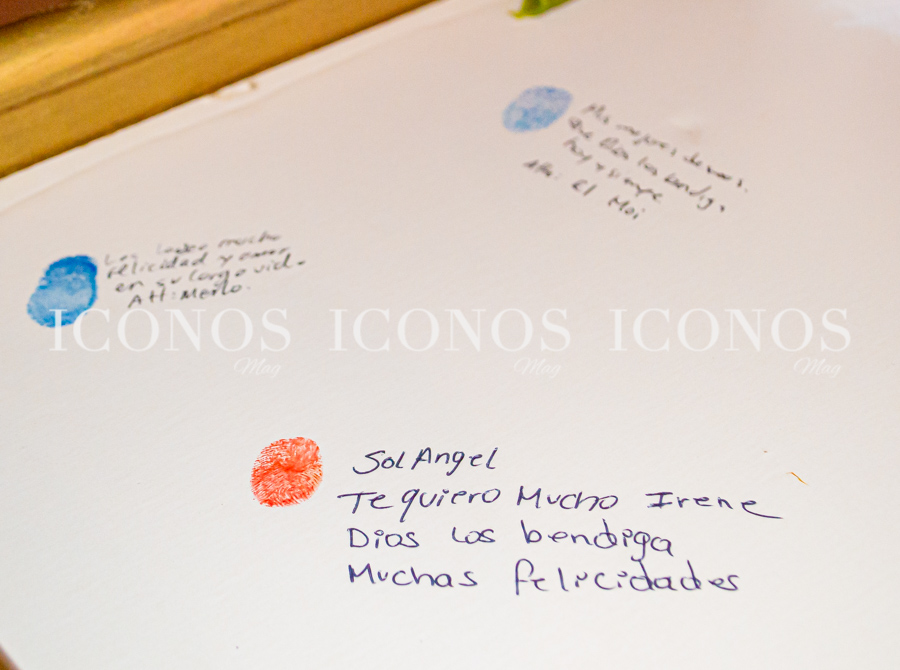 Mis mejores deseos.
que Dios los bendiga
hoy y siempre
Att: El Moi
mucho
felicidad y amor
en su larga vida.
Att: Merlo.
ICONOS ICONOS ICONOS
Mag Mag Mag
Sol Angel
Te quiero Mucho Irene
Dios los bendiga
Muchas felicidades